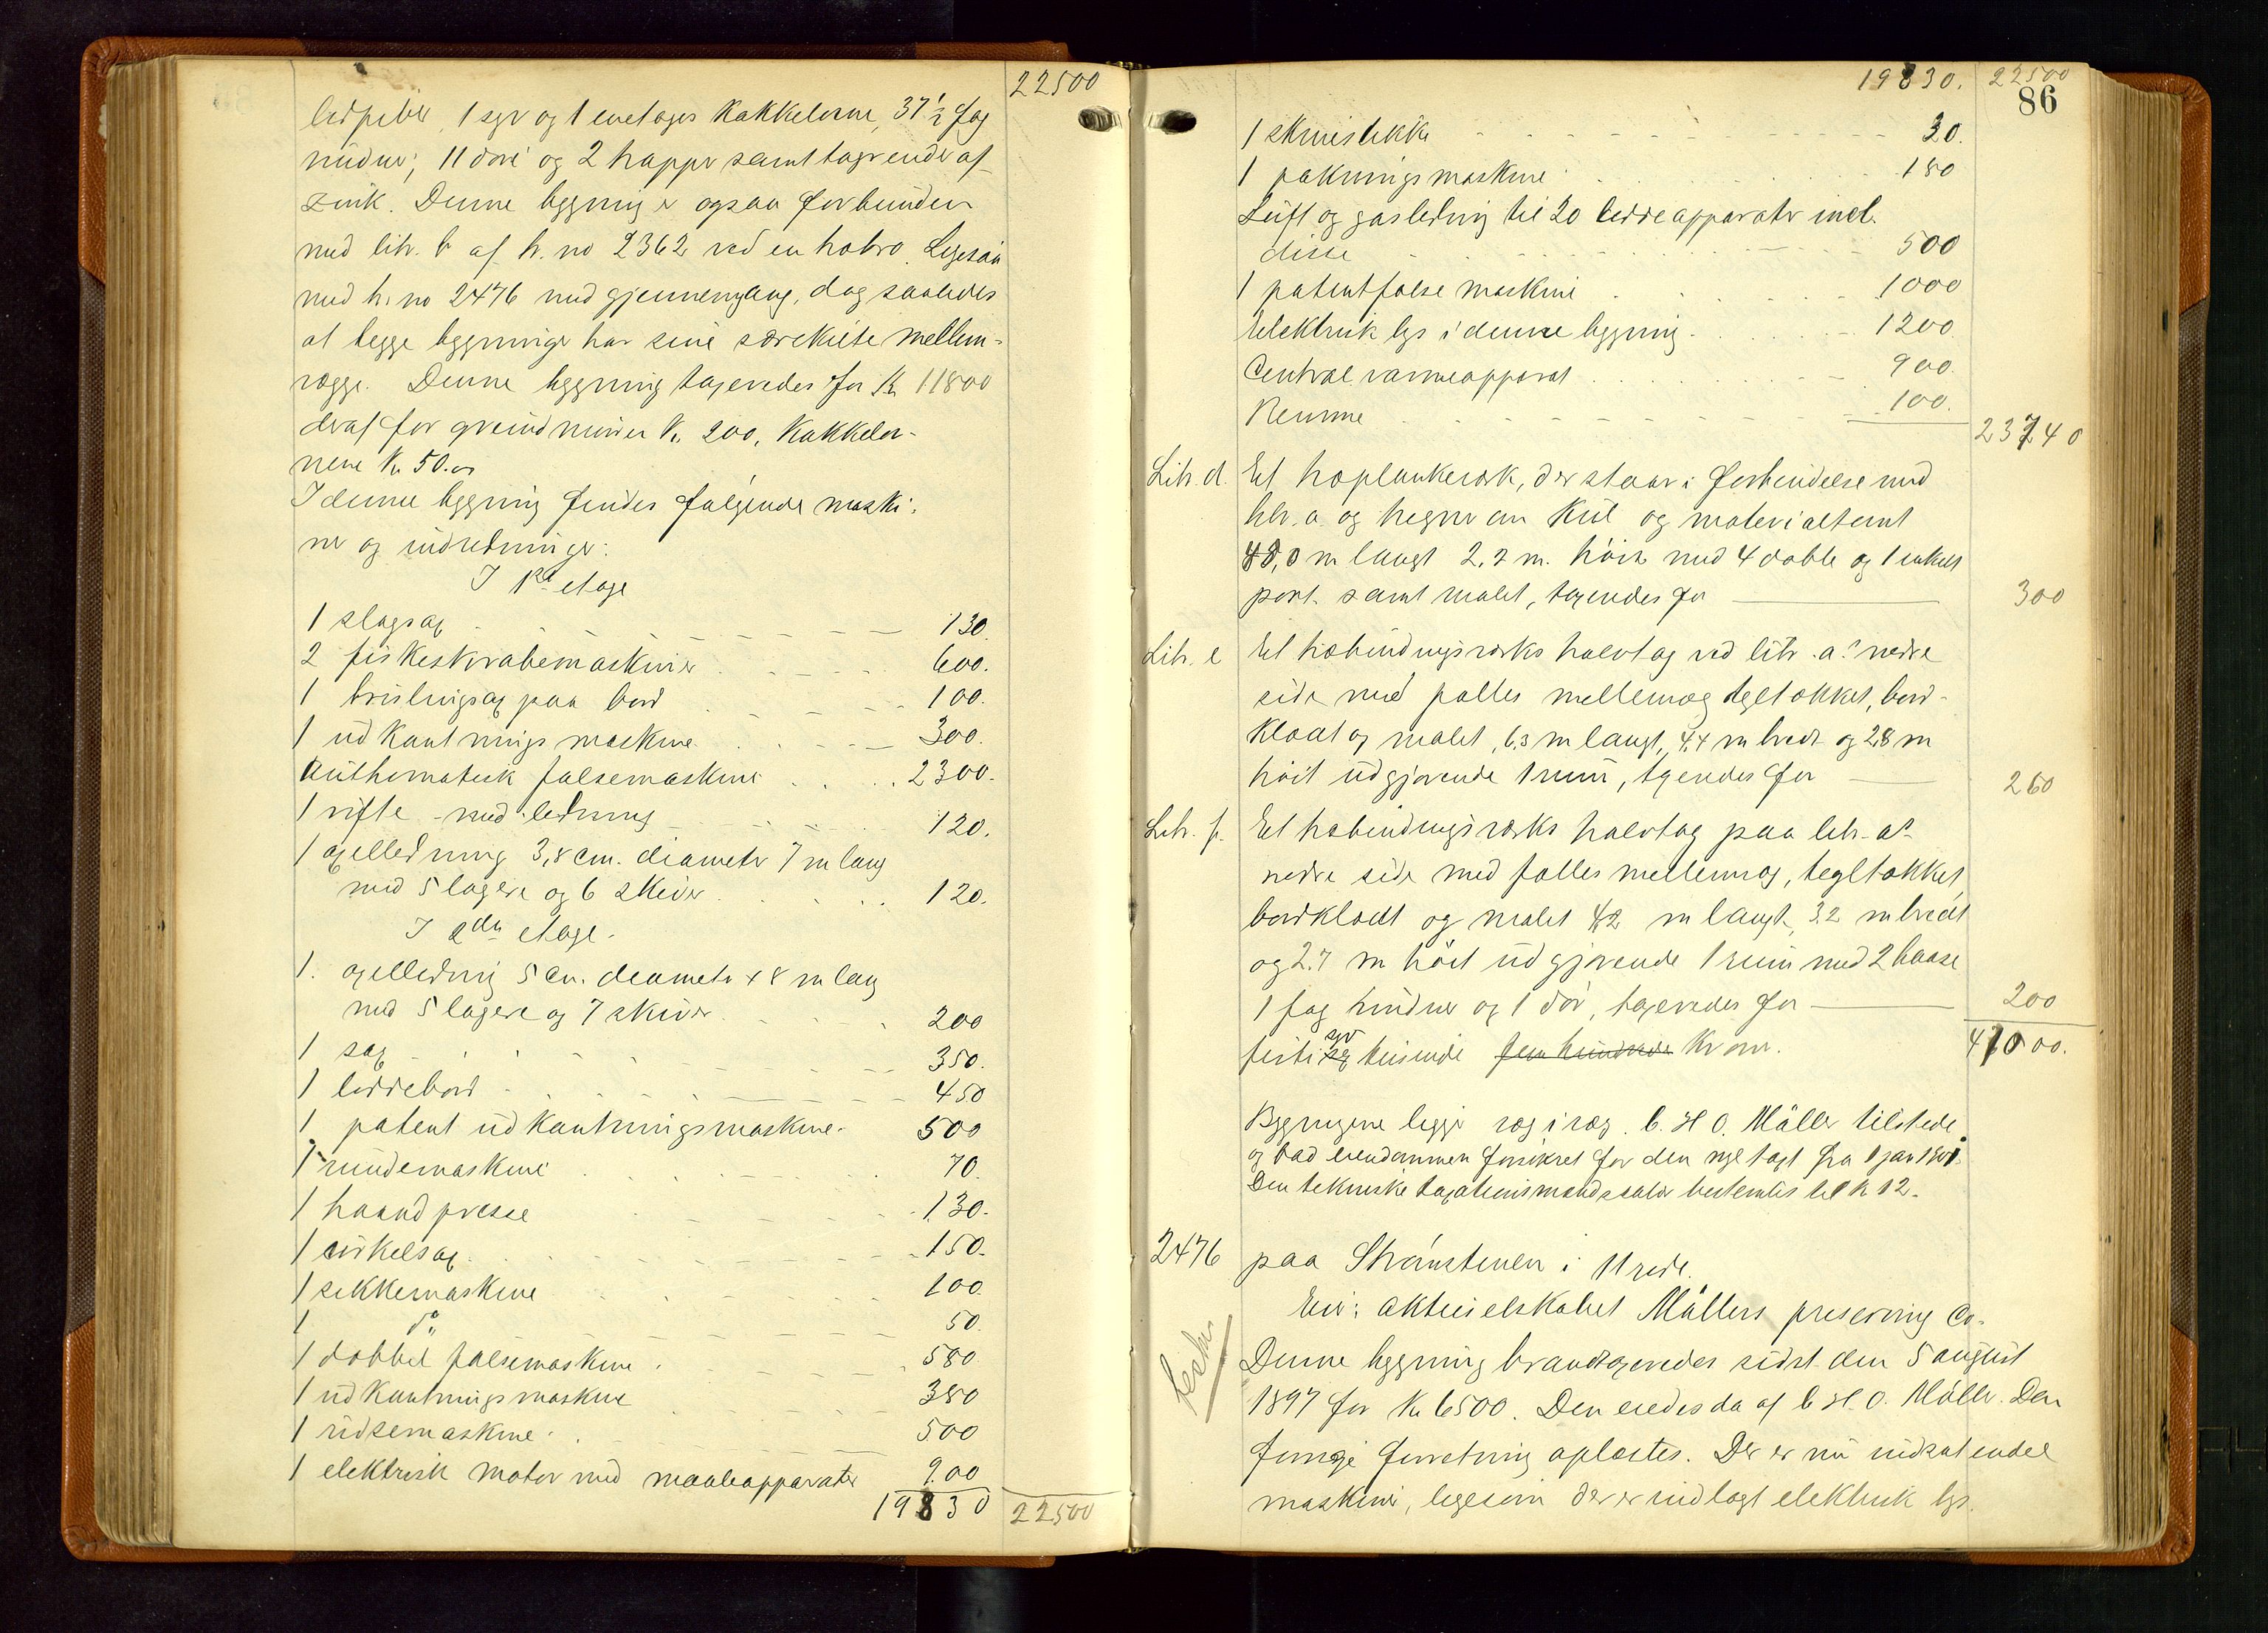 22500
1 syv og 1 enetages kakkelovne, 37 1/2 fag
vinduer, 11 döre og 2 trapper samt tagrende af
zink. Denne bygning er ogsaa forbunden
med litr. b af h. no 2362 ved en træbro. Ligesaa
med h. no 2476 med gjennemgang, dog saaledes
at begge bygninger har sine særskilte mellem-
vægge. Denne bygning taxeredes for Kr 11800
deraf for grundmuren Kr. 200, kakkelov-
nene Kr 50.00
I denne bygning findes følgende maski-
ner og indredninger:
I 1ste etage
1 slagsag 130.
2 fiskeskrabemaskiner 600.
1 brislingsag paa bord 100.
1 udkantningsmaskine 300.
Authomatisk falsemaskine 2300.
1 vifte med ledning 120.
1 axelledning 3,8 cm. diameter 7 m lang
med 5 lagere og 6 skiver 120.
I 2den etage.
1. axelledning 5 cm. diameter 8 m lang
med 5 lagere og 7 skiver 200
1 sag 350.
1 loddebord 450
1 patent udkantningsmaskine 500
1 rundemaskine 70.
1 haandpresse 130.
1 cirkelsag 150.
1 sikkemaskine 100.
1 do 50.
1 dobbel falsemaskine 580
1 udkantningsmaskine 380
1 ridsemaskine 500
1 elektrisk motor med maaleapparater 900
19830 22500
19830. 22500
86
1 skruestikke 30.
1 pakningsmaskine 180
Luft og gasledning til 20 loddeapparater incl.
disse 500
1 patentfalsemaskine 1000
Elektrisk lys i denne bygning 1200
Central varmeapparat 900.
Renner 100.
23740
Litr. d. Et træplankeværk, der staar i forbindelse med
litr. a og hegner om kul og materialtomt
48,0 m langt 2.2 m. höit med 4 doble og 1 enkelt
port samt malet, taxeredes for 300
Litr. e Et træbindingsværks halvtag ved litr. a's nedre
side med fælles mellemvæg tegltækket, bord-
klædt og malet, 6,3 m langt, 4,4 m bredt og 2,8 m
höit udgjørende 1 rum, taxeredes for 260
Litr. f. Et træbindingsværks halvtag paa litr. a's
nedre side med fælles mellemvæg, tegltækket,
bordklædt og malet 4,2 m langt, 3.2 m bredt
og 2.7 m höit udgjørende 1 rum med 2 baase
1 fag vinduer og 1 dör, taxeredes for 200
firti syv tusinde fem hundrede kroner. 47000.
Bygningerne ligger væg i væg. C. H. O. Möller tilstede
og bad eiendommen forsikret for den nye taxt fra 1 jan 1901.
Den tekniske taxationsmands salær bestemtes til Kr 12.
2476 paa Strömstenen i 11 rode.
Eier: Aktieselskabet Möllers preserving Co.
Denne bygning brandtaxeredes sidst den 5 august
1897 for Kr 6500. Den eiedes da af C. H. O. Möller. Den
forrige forretning oplæstes. Der er nu indsat endel
maskiner, ligesom der er indlagt elektrisk lys.